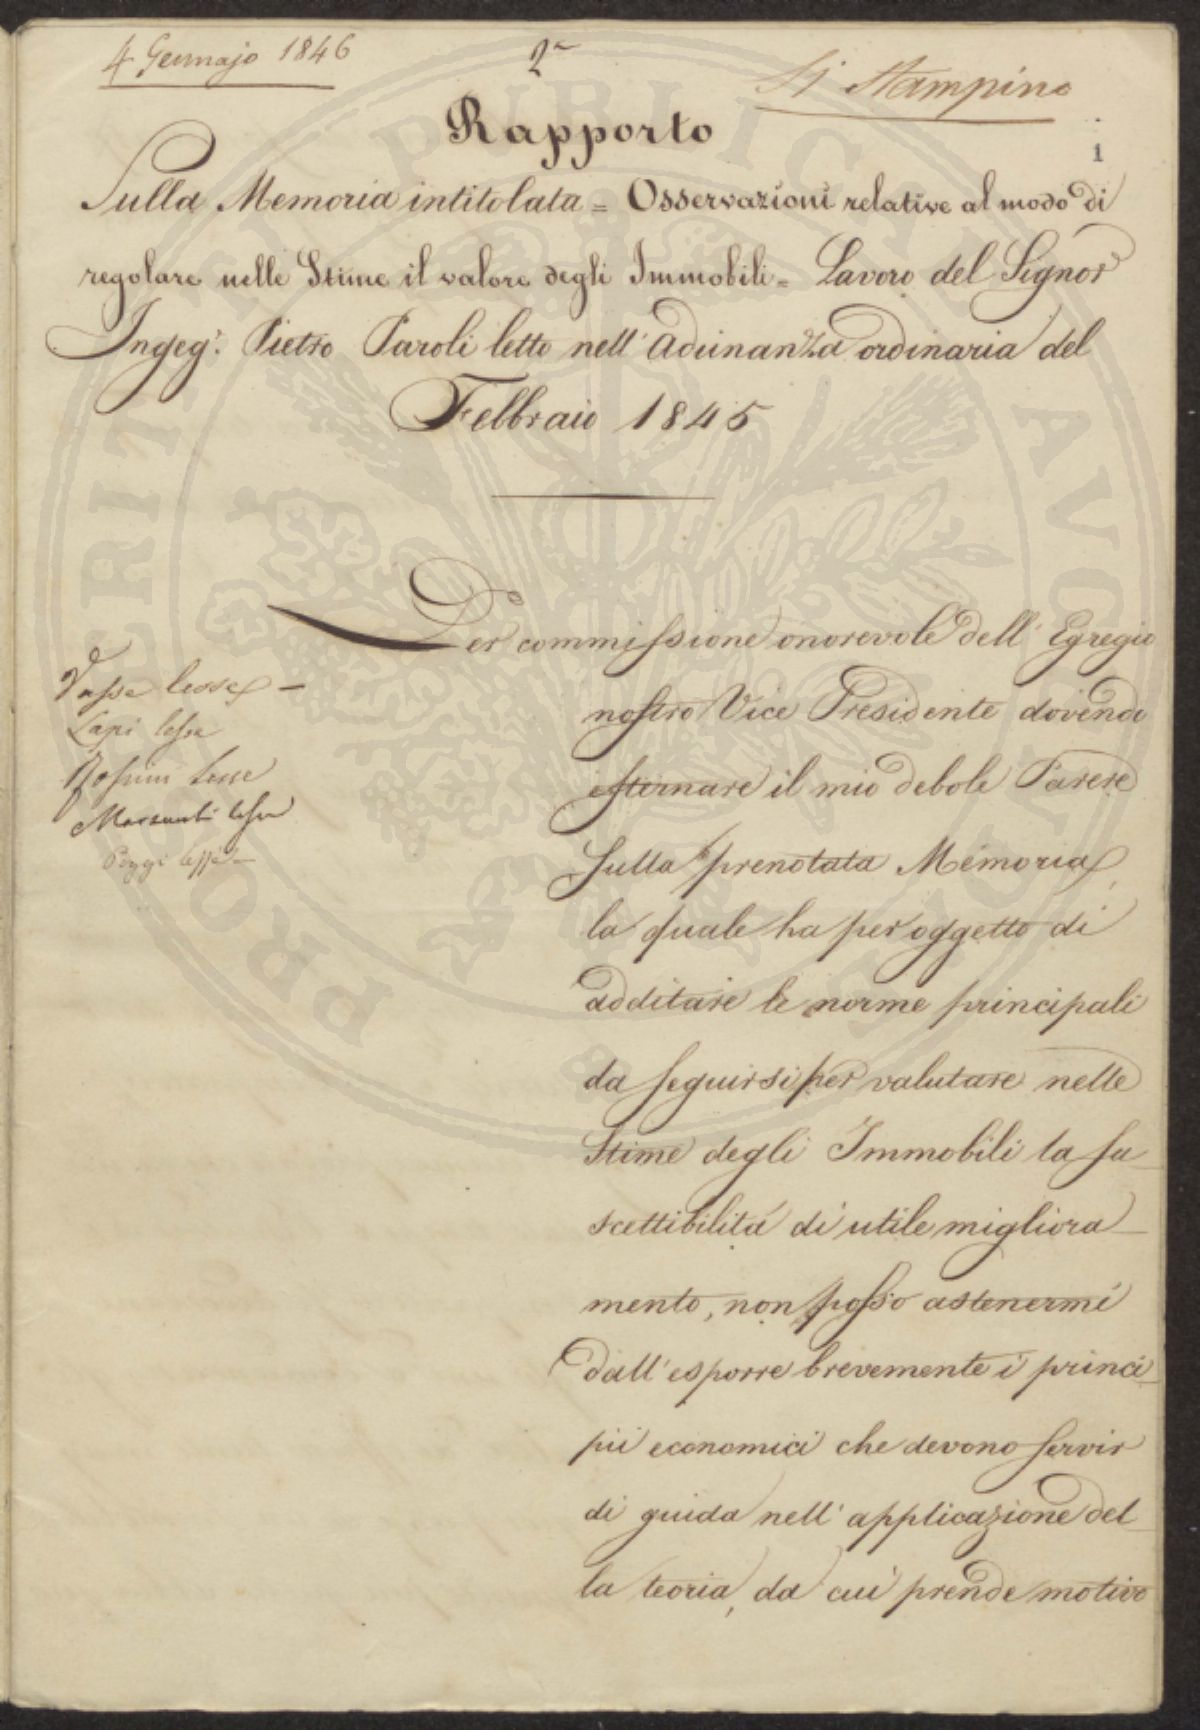 4 Gennajo 1846
2
Si Stampino
1
Rapporto
Sulla Memoria intitolata = Osservazioni relative al modo di
regolare nelle Stime il valore degli Immobili = Lavoro del Signor
Ingeg.r Pietro Paroli letto nell' Adunanza ordinaria del
Febbraio 1845
Per commissione onorevole dell' Egregio
nostro Vice Presidente dovendo
esternare il mio debole Parere
sulla prenotata Memoria,
la quale ha per oggetto di
additare le norme principali
da seguirsi per valutare nelle
Stime degli Immobili la su-
scettibilità di utile migliora-
mento, non posso astenermi
dall' esporre brevemente i princi-
pii economici che devono servir
di guida nell' applicazione del-
la teoria, da cui prende motivo
lesse
Lapi lesse
Rosini Lesse
lesse
Poggi lesse
PROSPERITATI PUBLICAE AUG